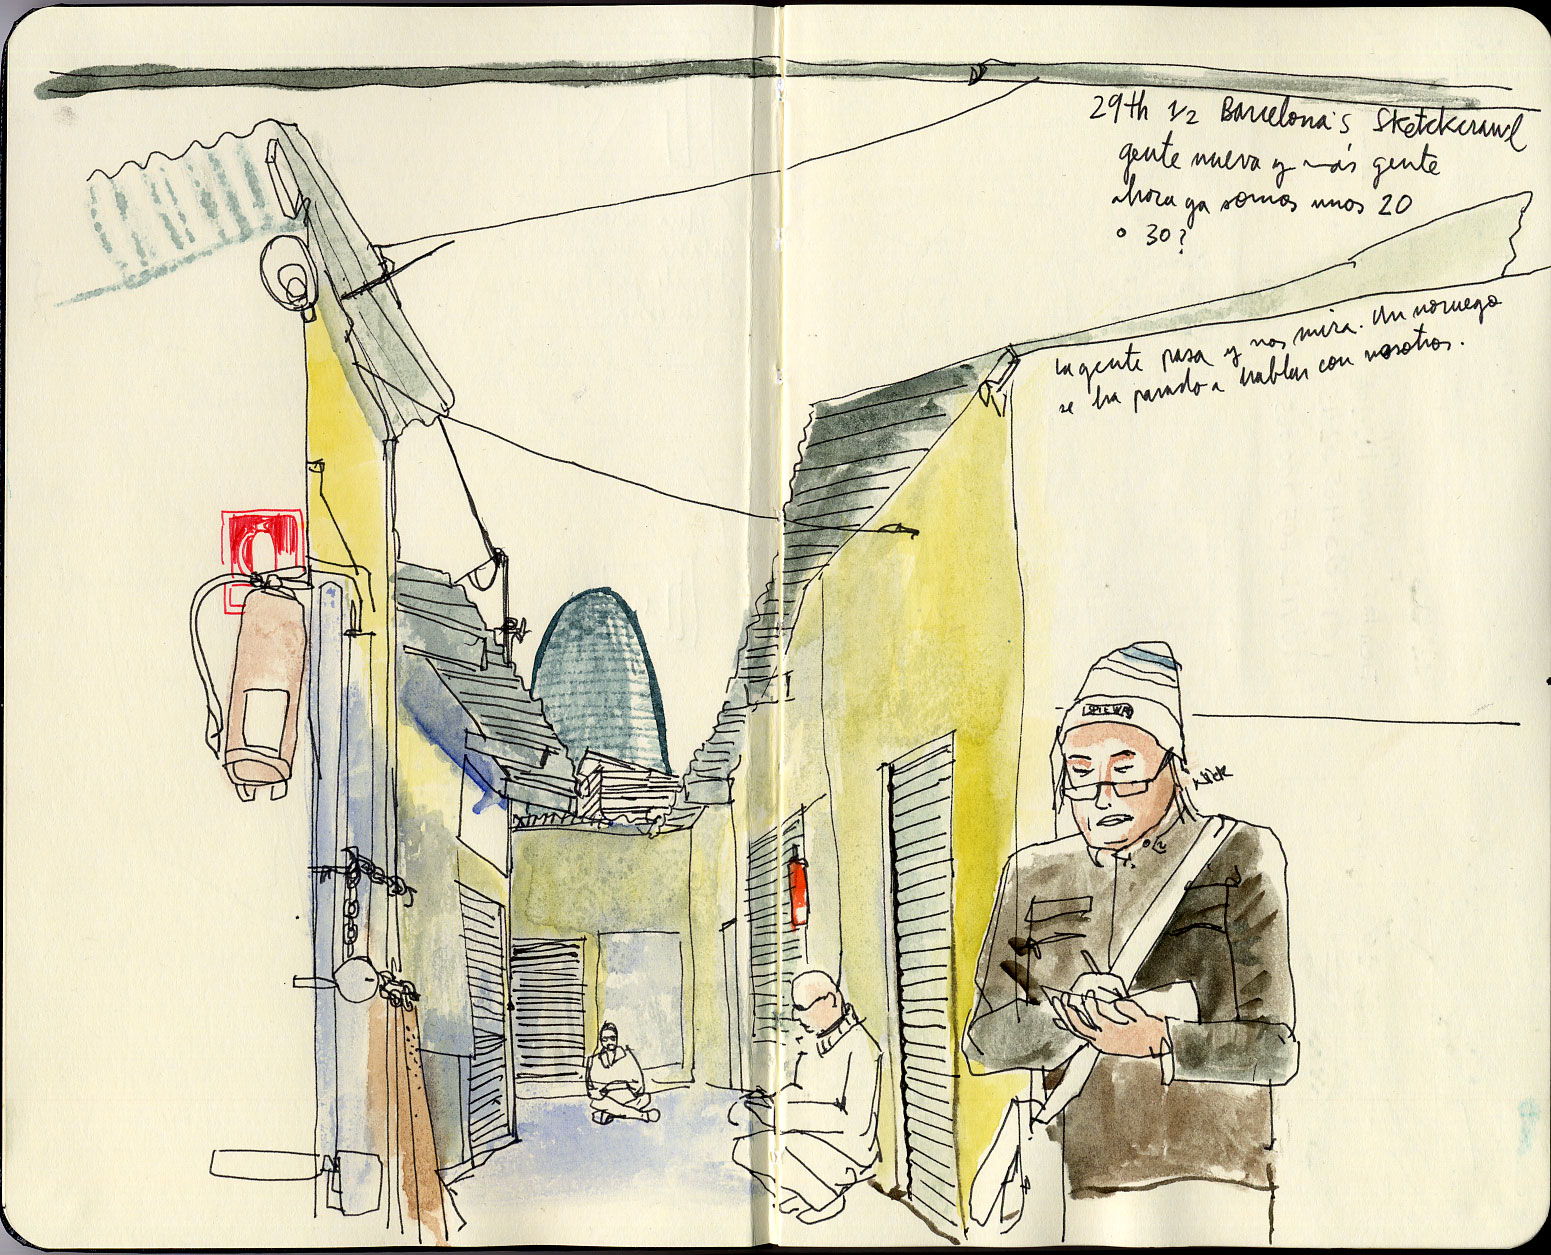 29th 1/2 Barcelona's Sketchcrawl
gente nueva y más gente
ahora ya somos unos 20
o 30?
la gente pasa y nos mira. Un noruego
se ha parado a hablar con nosotros.